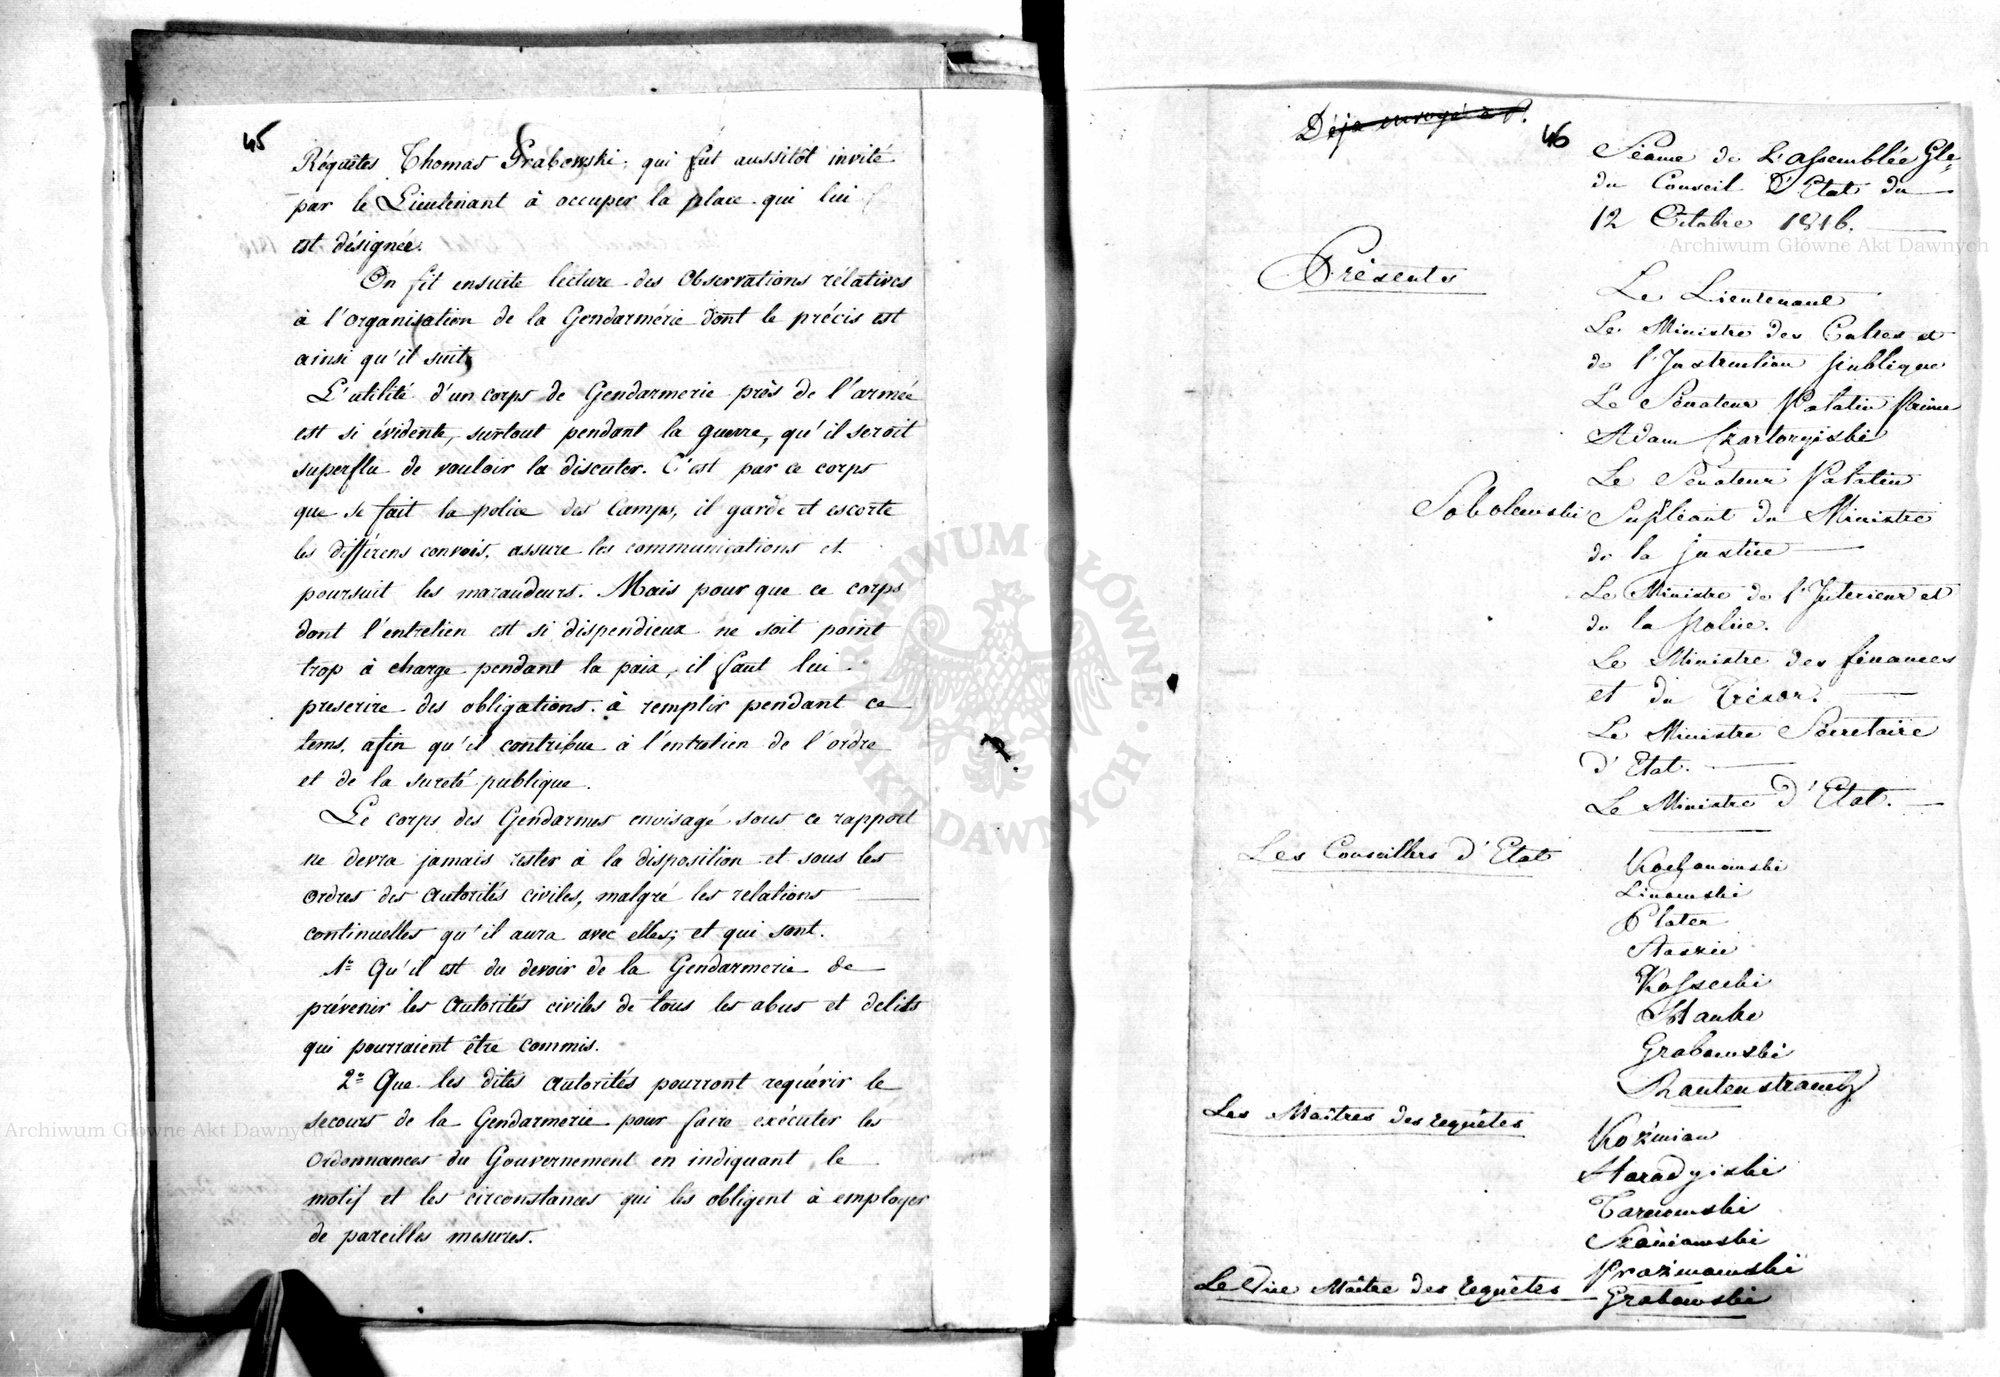 45
Réquêtes Thomas Grabowski, qui fut aussitôt invité
par le Lieutenant à occuper la place qui lui
est désignée.
On fit ensuite lecture des Observations rélatives
à l'organisation de la Gendarmérie dont le précis est
ainsi qu'il suit,
L'utilité d'un corps de Gendarmerie près de l'armée
est si évidente, surtout pendant la guerre, qu'il seroit
superflu de vouloir la discuter. C'est par ce corps
que se fait la police des Camps, il garde et escorte
les différens convois, assure les communications et
poursuit les maraudeurs. Mais pour que ce corps
dont l'entretien est si dispendieux ne soit point
trop à charge pendant la paix, il faut lui
prescrire des obligations à remplir pendant ce
tems, afin qu'il contribue à l'entretien de l'ordre
et de la sureté publique.
Le corps des Gendarmes envisagé sous ce rapport
ne devra jamais rester à la disposition et sous les
ordres des autorités civiles, malgré les relations
continuelles qu'il aura avec elles; et qui sont.
1º Qu'il est du devoir de la Gendarmerie de
prévenir les autorités civiles de tous les abus et delits
qui pourraient être commis.
2º Que les dites autorités pourront requérir le
secours de la Gendarmerie pour faire exécuter les
Ordonnances du Gouvernement en indiquant le
motif et les circonstances qui les obligent à employer
de pareilles mesures.
Déja envoyé à P.
46
Séance de L'assemblée Gle
du Conseil d'Etat du
12 Octobre 1816.
Présents
Le Lieutenant
Le Ministre des Cultes et
de l'Instruction publique
Le Sénateur Palatin Prince
Adam Czartoryiski
Le Sénateur Palatin
Sobolewski Supléant du Ministre
de la justice
Le Ministre de l'Interieur et
de la Police.
Le Ministre des finances
et du Trésor.
Le Ministre Sécretaire
d'Etat.
Le Ministre d'Etat.
Les Conseillers d'Etat
Kochanowski
Linowski
Plater
Staszic
Kossecki
Hauke
Grabowski
Rautenstrauch
Les Maîtres des requêtes
Koźmian
Harodyiski
Tarnowski
Szaniawski
Prażmowski
Le Vice Maître des requêtes Grabowski
Archiwum Główne Akt Dawnych
Archiwum Główne Akt Dawnych
ARCHIWUM GŁÓWNE AKT DAWNYCH